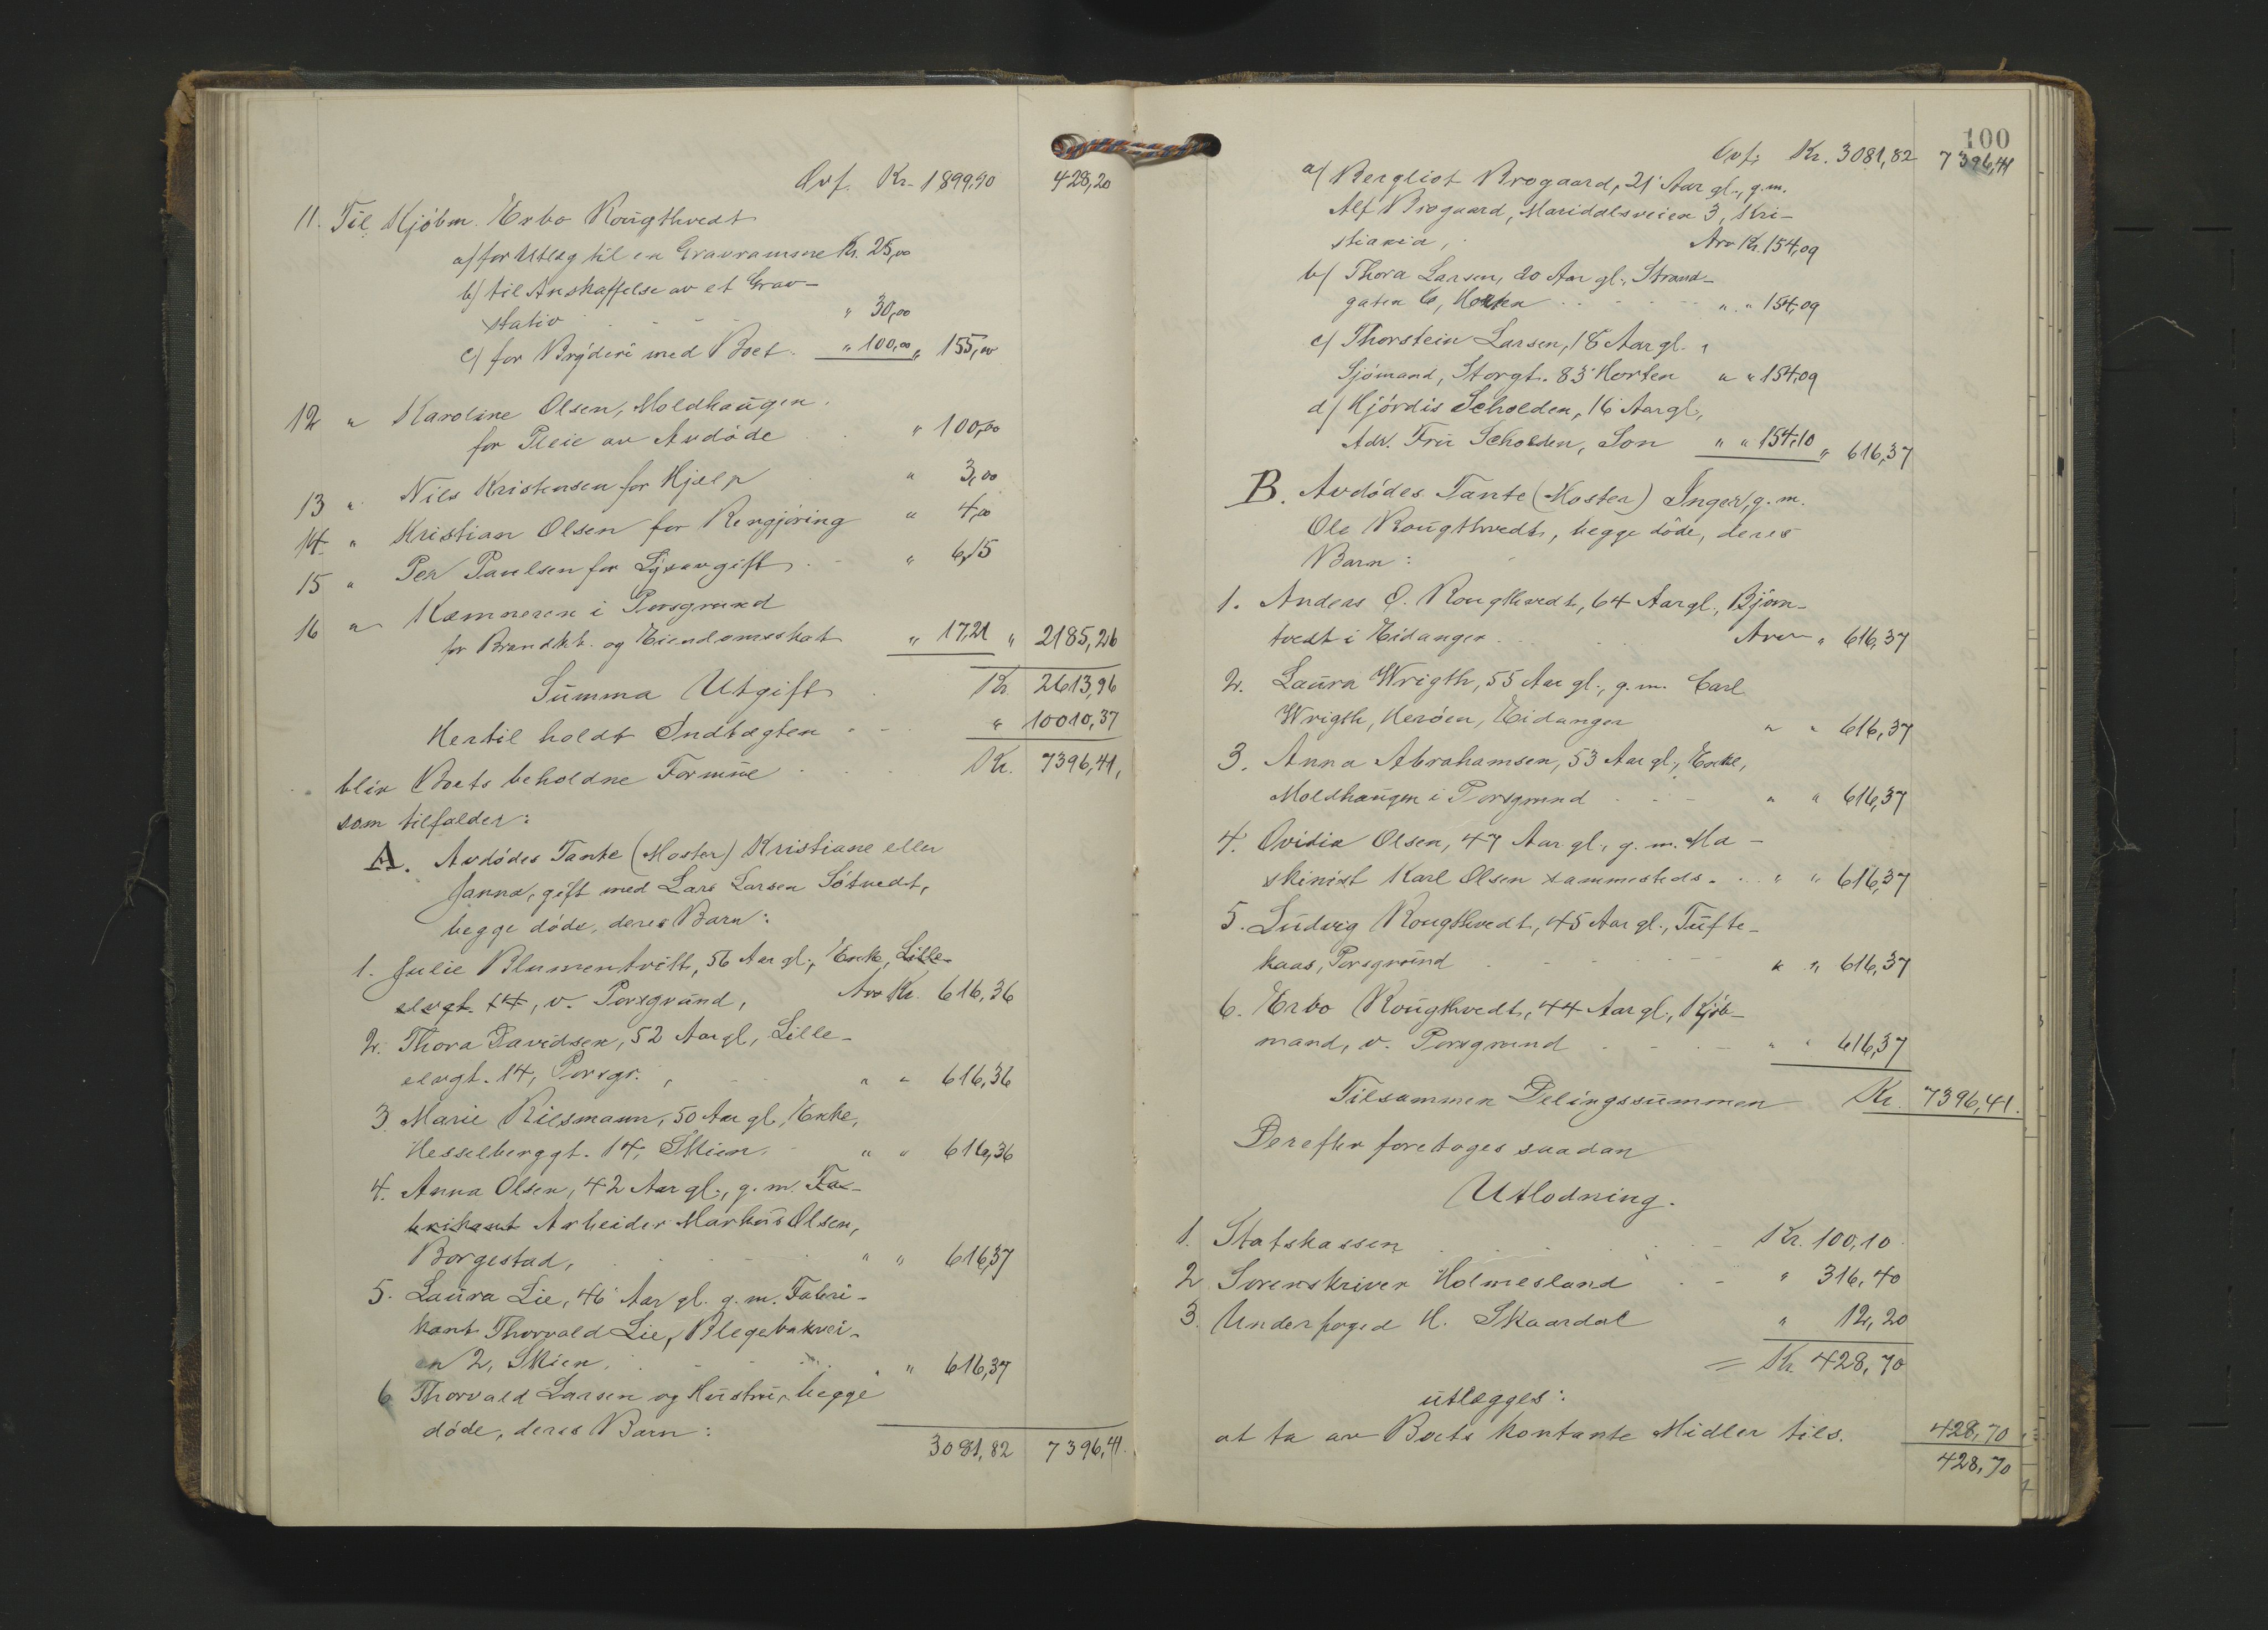 Ovf. Kr. 1899,90 428,20
11. Til Kjöbm. Erbo Rougthvedt
a/ for Utlæg til en Gravramme Kr. 25,00
b/ til Anskaffelse av et Grav-
stativ " 30,00
c/ for Bryderi med Boet " 100,00 " 155,00
12 " Karoline Olsen, Moldhaugen
for Pleie av Avdöde " 100,00
13 " Nils Kristensen for Hjælp " 3,00
14 " Kristian Olsen for Rengjöring " 4,00
15 " Per Paulsen for Lysavgift " 6,15
16 " Kæmneren i Porsgrund
for Brandkt. og Eiendomsskat " 17,21 " 2185,26
Summa Utgift Kr. 2613,96
Hertil holdt Indtægten " 10010,37
blir Boets beholdne Formue Kr. 7396,41,
som tilfalder:
A. Avdödes Tante (Moster) Kristiane eller
Janna, gift med Lars Larsen Sötvedt,
begge döde, deres Barn:
1. Julie Blumentvitt, 56 Aar gl., Enke, Lille-
elvgt. 14, v. Porsgrund, Arv Kr. 616,36
2. Thora Davidsen, 52 Aar gl, Lille-
elvgt. 14, Porsgr. " " 616,36
3. Marie Riismann, 50 Aar gl, Enke,
Hesselberggt. 14, Skien. " " 616,36
4. Anna Olsen, 42 Aar gl., g. m. Fa-
brikant Arbeider Markus Olsen,
Borgestad, " " 616,37
5. Laura Lie, 46 Aar gl. g. m. Fabri-
kant Thorvald Lie, Blegebakvei-
en 2, Skien. " 616,37
6 Thorvald Larsen og Hustru, begge
döde, deres Barn:
3081,82 7396,41.
100
Ovf. Kr. 3081,82 7396,41
a/ Bergliot Brogaard, 21 Aar gl., g. m.
Alf Brogaard, Maridalsveien 3, Kri-
stiania, Arv Kr. 154,09
b/ Thora Larsen, 20 Aar gl., Strand-
gaten 6, Horten " " 154,09
c/ Thorstein Larsen, 18 Aar gl.,
Sjömand, Storgt. 83 Horten " " 154,09
d/ Hjördis Scholden, 16 Aar gl,
Adr. Fru Scholden, Son " " 154,10 " 616,37
B. Avdödes Tante (Moster) Inger, g. m.
Ole Rougthvedt, begge döde, deres
Barn:
1. Anders O. Rougthvedt, 64 Aar gl., Bjørn-
tvedt i Eidanger Arv " 616,37
2. Laura Wrigth, 55 Aar gl., g. m. Carl
Wrigth, Heröen, Eidanger " " 616,37
3. Anna Abrahamsen, 53 Aar gl., Enke,
Moldhaugen i Porsgrund " " 616,37
4. Ovidia Olsen, 47 Aar gl., g. m. Ma-
skinist Karl Olsen sammesteds. " " 616,37
5. Ludvig Rougthvedt, 45 Aar gl., Tufte-
kaas, Porsgrund " " 616,37
6. Erbo Rougthvedt, 44 Aar gl., Kjöb-
mand, v. Porsgrund " " 616,37
Tilsammen Delingssummen Kr. 7396,41.
Derefter foretoges saadan
Utlodning.
1. Statskassen Kr. 100,10
2 Sorenskriver Holmesland " 316,40
3. Underfoged H. Skaardal " 12,20
= Kr. 428,70
utlægges:
at ta av Boets kontante Midler tils. 428,70
428,70